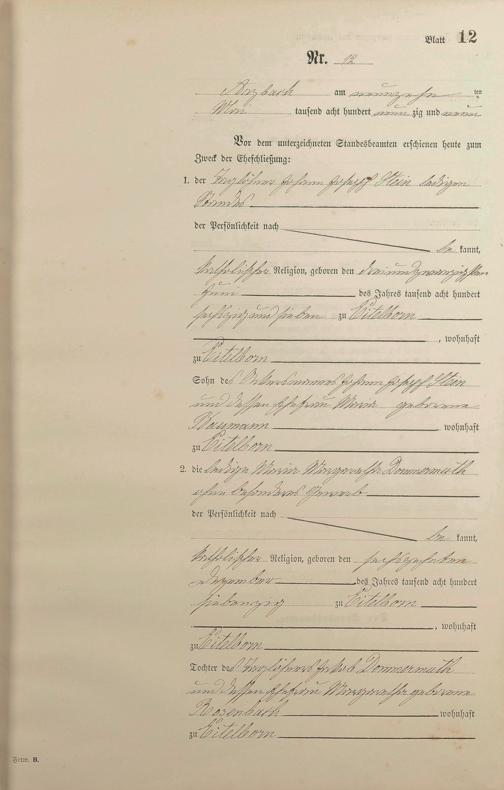 Blatt 12
Nr. 12
Arzbach am neunzehn ten
Mai tausend acht hundert neun zig und neun
Vor dem unterzeichneten Standesbeamten erschienen heute zum
Zweck der Eheschließung:
1. der Taglöhner Johann Joseph Stein ledigen
Standes
der Persönlichkeit nach
be kannt,
katholischer Religion, geboren den dreiundzwanzigsten
Juni des Jahres tausend acht hundert
sechszig und sieben zu Eitelborn
, wohnhaft
zu Eitelborn
Sohn des Ackersmannes Johann Joseph Stein
und dessen Ehefrau Maria geborene
Naumann wohnhaft
zu Eitelborn
2. die ledige Maria Margaretha Dommermuth
ohne besonderes Gewerb
der Persönlichkeit nach
be kannt,
katholischer Religion, geboren den sechszehnten
Dezember des Jahres tausend acht hundert
siebenzig zu Eitelborn
, wohnhaft
zu Eitelborn
Tochter des Taglöhners Jakob Dommermuth
und dessen Ehefrau Margaretha geborene
Rosenbach wohnhaft
zu Eitelborn
Form. B.